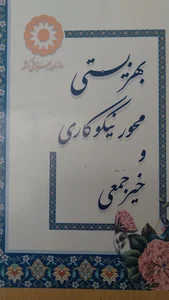 سازمان بهزیستی کشور
بهزیستی
محور نیکوکاری
و
خیر جمعی